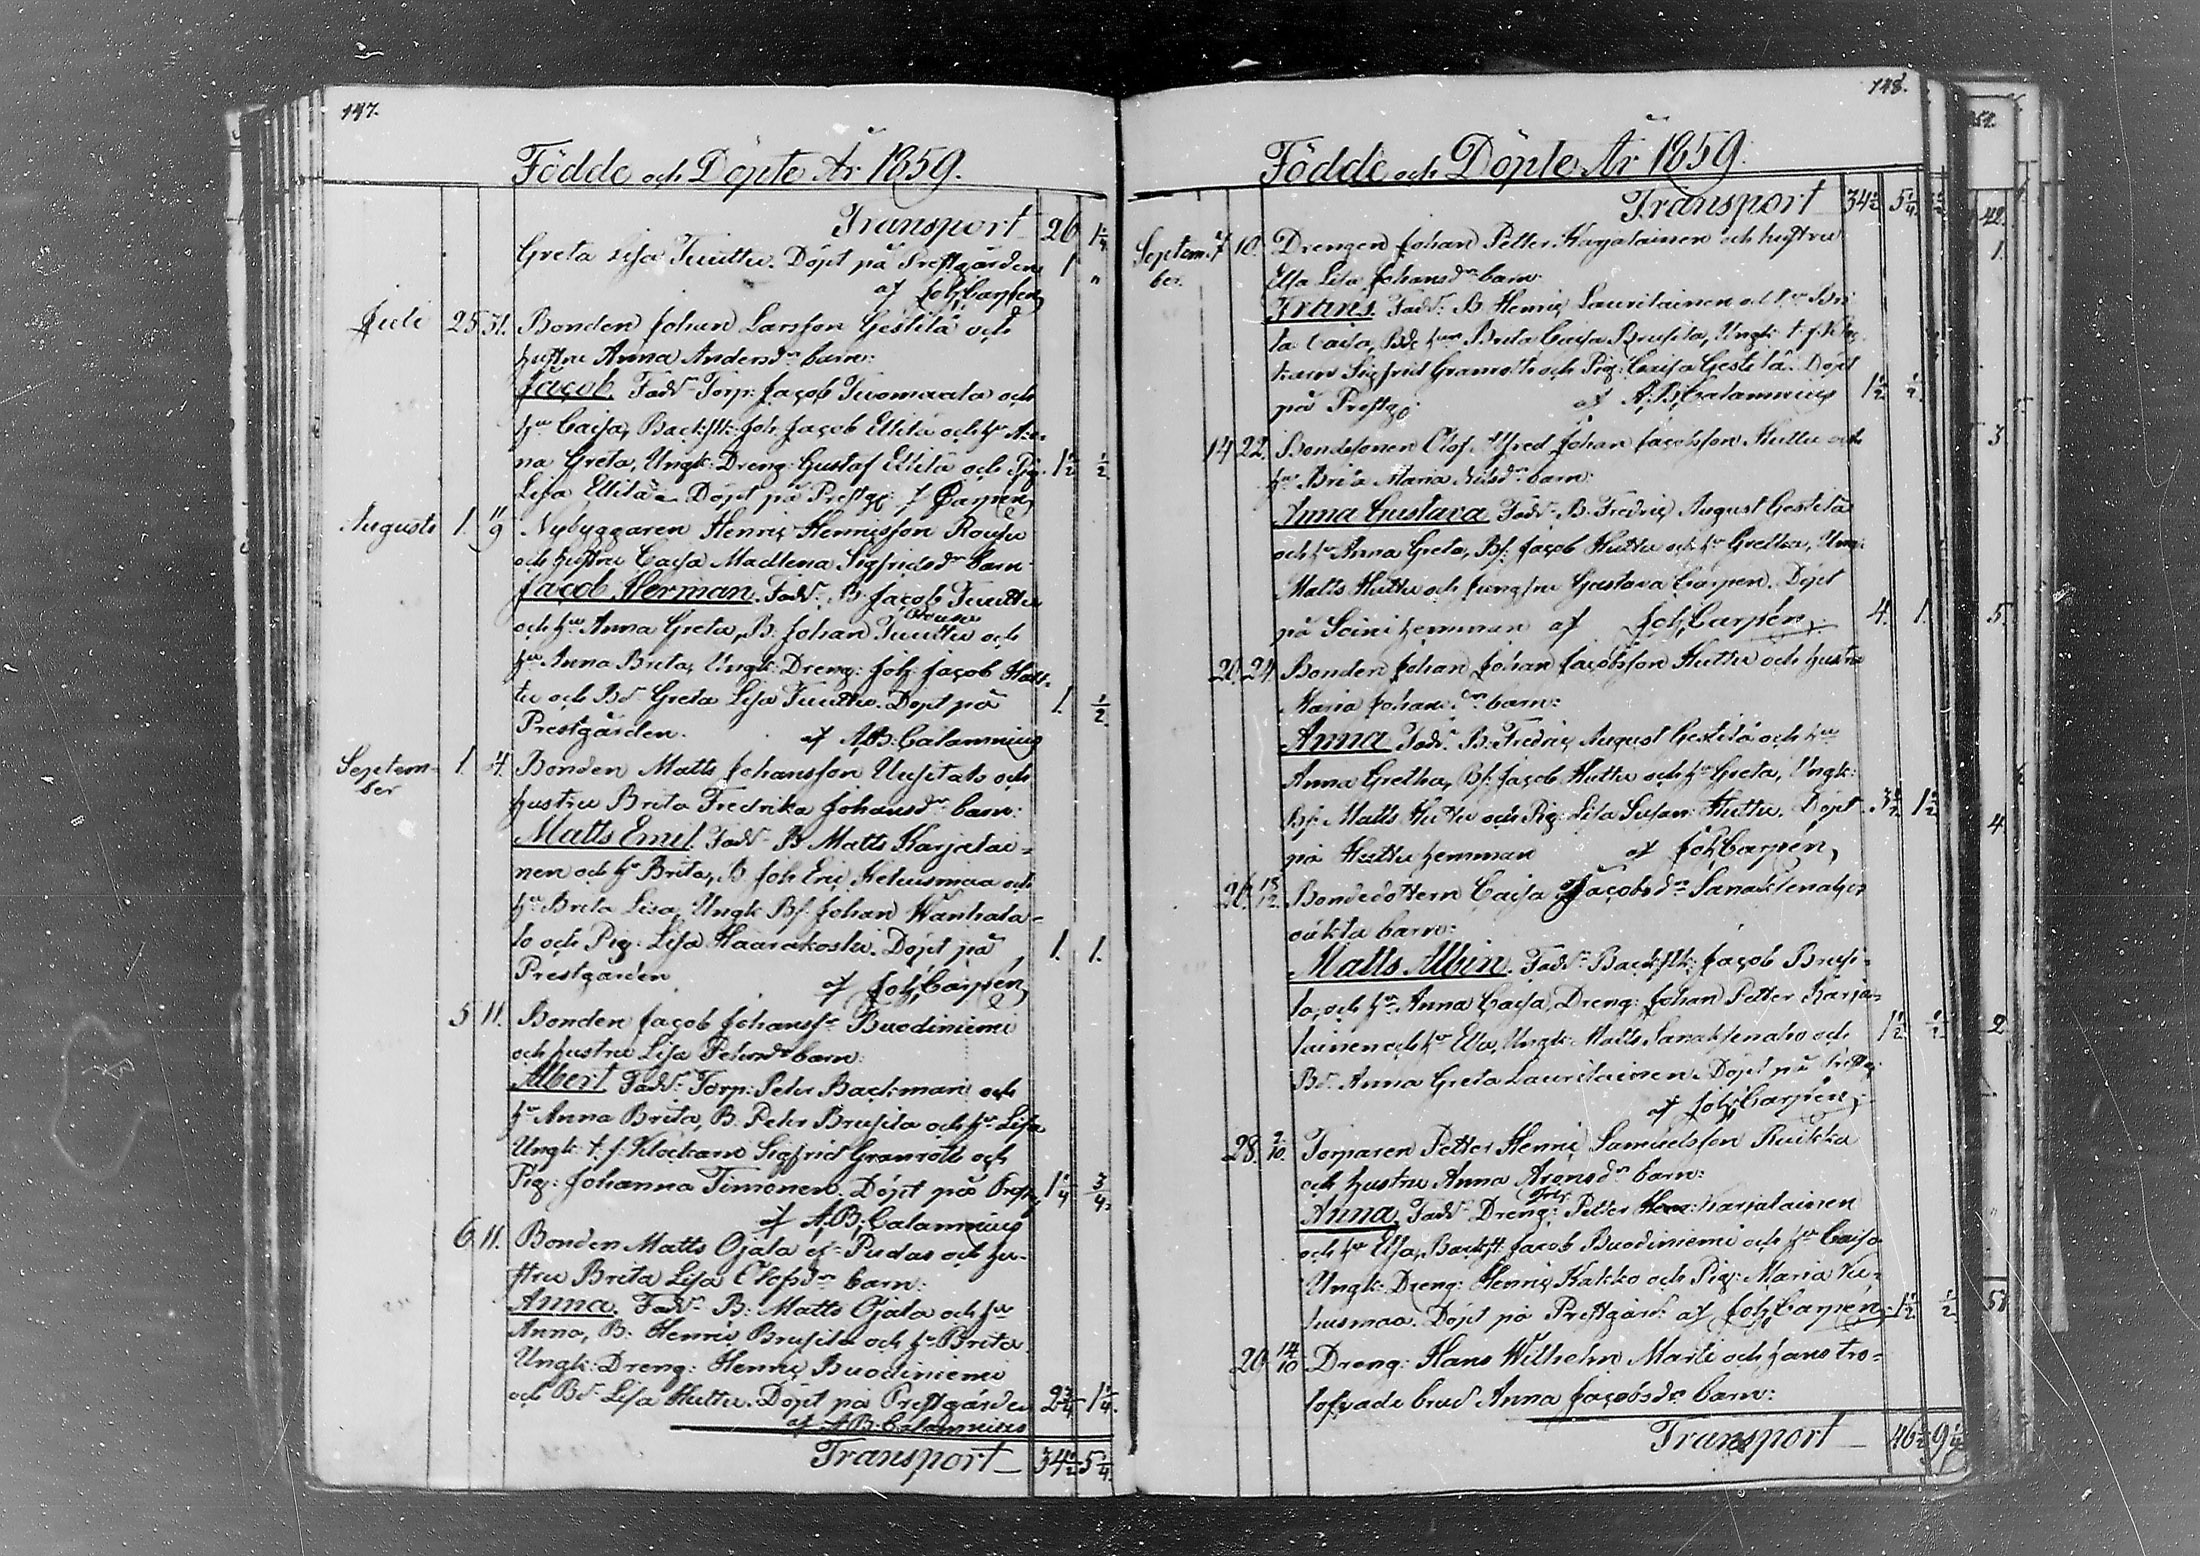 147.
Födde och Döpte År 1859.
Transport 26 1 1/4
Greta Lisa Tuuttu. Döpt på Prestgården 1 "
af Joh. Carpén,
Juli 25 31. Bonden Johan Larsson Gestilä och
hustru Anna Andersdr barn:
Jacob. Fadd. Torp: Jacob Tuomaala och
hu Caisa, Backstk: Joh. Jacob Ellilä och hu An-
na Greta, Ungk: Dreng: Gustaf Ellilä och Pig. 1 1/2 1/2
Lisa Ellilä. Döpt på Prestg: af Carpén,
Augusti 1. 11/9 Nybyggaren Henric Henricsson Rousu
och hustru Caisa Madlena Sigfridsdr barn
Jacob Herman. Fadd. B. Jacob Tuuttu
Rousu
och hu Anna Greta, B. Johan Tuuttu och
hu Anna Brita, Ungk: Dreng: Joh: Jacob Hut-
tu och Bd. Greta Lisa Tuuttu. Döpt på 1. 1/2.
Prestgården. af A.B. Calamnius
Septem- 1. 4. Bonden Matts Johansson Uusitalo och
ber
hustru Brita Fredrika Johansdr barn:
Matts Emil. Fadd. B Matts Karjalai-
nen och hu Brita, B Joh Eric Kehusmaa och
hu Brita Lisa, Ungk Bs. Johan Wanhata-
lo och Pig: Lisa Haarakoski. Döpt på 1. 1.
Prestgården af Joh. Carpén,
5 11. Bonden Jacob Johanss. Buodiniemi
och hustru Lisa Petersdr barn:
Albert Fadd. Torp: Peter Backman och
hu Anna Brita, B. Peter Brusila och hu Lisa
Ungk: t. f. Klockarn Sigfrid Granroth och
Pig: Johanna Timonen. Döpt på Prestg. 1 1/4 3/4.
af A.B. Calamnius
6 11. Bonden Matts Ojala el. Pudas och hu-
stru Brita Lisa Olofsdr barn:
Anna. Fadd. B: Matts Ojala och hu
Anna, B. Henric Brusila och hu Brita
Ungk: Dreng: Henric Buodiniemi
och Bd. Lisa Huttu. Döpt på Prestgården 2 3/4 1 1/4.
af A.B. Calamnius
Transport 34 1/2 5 1/4.
148.
Födde och Döpte År 1859.
Transport 34 1/2 5 1/4
Septem- 7 10. Drengen Johan Petter Karjalainen och hustru
ber.
Elsa Lisa Johansdr barn:
Frans. Fadd: B. Henric Lauritainen och hu Bri
ta Caisa, Brita Caisa Brusila, Ungk: t. f. Kloc-
karn Sigfrid Granroth och Pig: Caisa Gestilä. Döpt
på Prestg: af A.B. Calamnius 1 1/2 1/2
14 22. Bondesonen Olof Alfred Johan Jacobsson Huttu och
hu Brita Maria Nilsdr barn:
Anna Gustava Fadd. B. Fredric August Gestilä
och hu Anna Greta, Bs: Jacob Huttu och hu Gretha, Ung:
Matts Huttu och Jungfru Gustava Carpen. Döpt
på Soini hemman af Joh. Carpén, 4. 1.
20. 24. Bonden Johan Johan Jacobsson Huttu och hustru
Maria Johansdr barn:
Anna Fadd. B. Fredric August Gestilä och hu
Anna Gretha, Bs: Jacob Huttu och hu Greta, Ungk:
Bs: Matts Huttu och Pig: Lisa Susan: Huttu. Döpt 3 1/2 1 1/2
på Huttu hemman af Joh. Carpén,
26. Bondedottern Caisa Jacobsdr Sanaksenaho
oäkta barn:
Matts Albin. Fadd. Backstk: Jacob Brusi-
la, och hu Anna Caisa, Dreng: Johan Petter Karja-
lainen och hu Elsa, Ungk: Matts Sanaksenaho och 1 1/2 1/2
Bd. Anna Greta Lauritainen. Döpt på Prestg:
af Joh. Carpén,
28. 2/10. Torparen Petter Henric Samuelsson Ruikka
och hustru Anna Aronsdr barn:
Anna. Fadd. Dreng: Petter Karjalainen
och hu Elsa, Backst. Jacob Buodiniemi och hu Caisa
Ungk: Dreng: Henric Kakko och Pig: Maria Ke-
husmaa. Döpt på Prestgård: af Joh. Carpén, 1 1/2 1/2
20 14/10 Dreng: Hans Wilhelm Marti och hans tro-
lofvade brud Anna Jacobsdr barn:
Transport 46 1/2 9 1/4